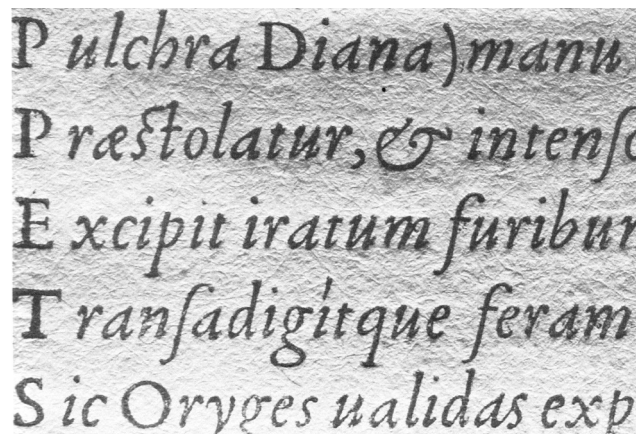 Pulchra Diana) manu
Præſtolatur, & intenſo
Excipit iratum furibun
Tranſadigitque feram
Sic Oryges ualidas exp